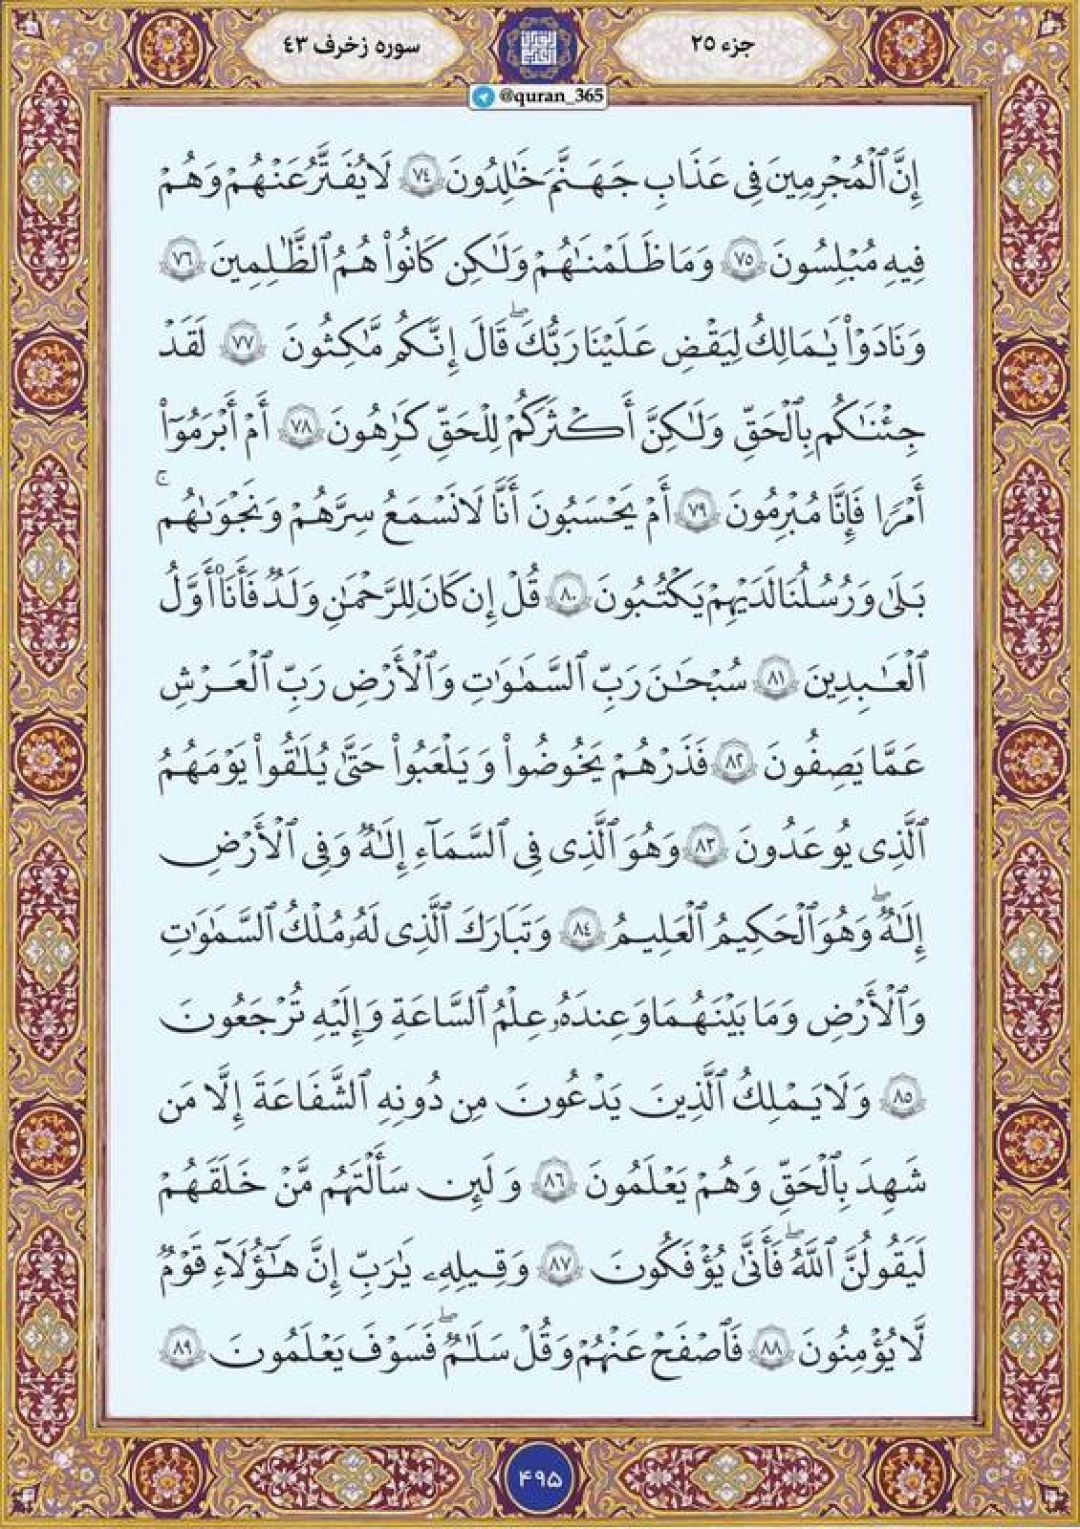 جزء ۲۵
سوره زخرف ۴۳
@quran_365
إِنَّ ٱلْمُجْرِمِينَ فِى عَذَابِ جَهَنَّمَ خَٰلِدُونَ ٧٤ لَا يُفَتَّرُ عَنْهُمْ وَهُمْ
فِيهِ مُبْلِسُونَ ٧٥ وَمَا ظَلَمْنَٰهُمْ وَلَٰكِن كَانُوا۟ هُمُ ٱلظَّٰلِمِينَ ٧٦
وَنَادَوْا۟ يَٰمَٰلِكُ لِيَقْضِ عَلَيْنَا رَبُّكَ ۖ قَالَ إِنَّكُم مَّٰكِثُونَ ٧٧ لَقَدْ
جِئْنَٰكُم بِٱلْحَقِّ وَلَٰكِنَّ أَكْثَرَكُمْ لِلْحَقِّ كَٰرِهُونَ ٧٨ أَمْ أَبْرَمُوٓا۟
أَمْرًا فَإِنَّا مُبْرِمُونَ ٧٩ أَمْ يَحْسَبُونَ أَنَّا لَا نَسْمَعُ سِرَّهُمْ وَنَجْوَىٰهُم ۚ
بَلَىٰ وَرُسُلُنَا لَدَيْهِمْ يَكْتُبُونَ ٨٠ قُلْ إِن كَانَ لِلرَّحْمَٰنِ وَلَدٌ فَأَنَا۠ أَوَّلُ
ٱلْعَٰبِدِينَ ٨١ سُبْحَٰنَ رَبِّ ٱلسَّمَٰوَٰتِ وَٱلْأَرْضِ رَبِّ ٱلْعَرْشِ
عَمَّا يَصِفُونَ ٨٢ فَذَرْهُمْ يَخُوضُوا۟ وَيَلْعَبُوا۟ حَتَّىٰ يُلَٰقُوا۟ يَوْمَهُمُ
ٱلَّذِى يُوعَدُونَ ٨٣ وَهُوَ ٱلَّذِى فِى ٱلسَّمَآءِ إِلَٰهٌ وَفِى ٱلْأَرْضِ
إِلَٰهٌ ۖ وَهُوَ ٱلْحَكِيمُ ٱلْعَلِيمُ ٨٤ وَتَبَارَكَ ٱلَّذِى لَهُۥ مُلْكُ ٱلسَّمَٰوَٰتِ
وَٱلْأَرْضِ وَمَا بَيْنَهُمَا وَعِندَهُۥ عِلْمُ ٱلسَّاعَةِ وَإِلَيْهِ تُرْجَعُونَ
٨٥ وَلَا يَمْلِكُ ٱلَّذِينَ يَدْعُونَ مِن دُونِهِ ٱلشَّفَٰعَةَ إِلَّا مَن
شَهِدَ بِٱلْحَقِّ وَهُمْ يَعْلَمُونَ ٨٦ وَلَئِن سَأَلْتَهُم مَّنْ خَلَقَهُمْ
لَيَقُولُنَّ ٱللَّهُ ۖ فَأَنَّىٰ يُؤْفَكُونَ ٨٧ وَقِيلِهِۦ يَٰرَبِّ إِنَّ هَٰٓؤُلَآءِ قَوْمٌ
لَّا يُؤْمِنُونَ ٨٨ فَٱصْفَحْ عَنْهُمْ وَقُلْ سَلَٰمٌ ۖ فَسَوْفَ يَعْلَمُونَ ٨٩
۴۹۵